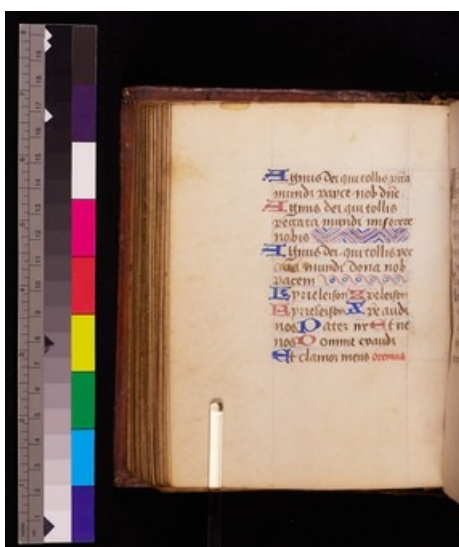 Agnus dei qui tollis pcca
mundi parce nob dne
Agnus dei qui tollis
peccata mundi miserere
nobis
Agnus dei qui tollis pec
cata mundi dona nob
pacem
Kyrieleison Xpeleison
Kyrieleison Xpe audi
nos Pater nr Et ne
nos Domine exaudi
Et clamor meus oremus